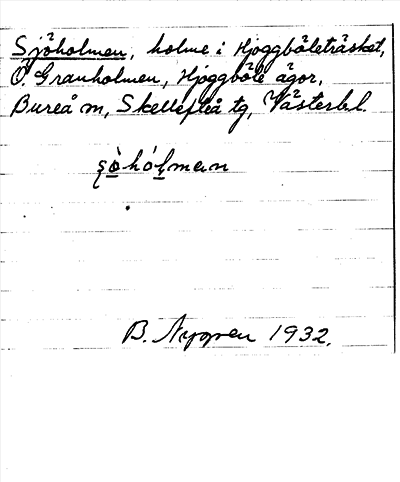 Sjöholmen, holme i Hjoggböleträsket,
Ö. Granholmen, Hjoggböle ägor,
Bureå sn, Skellefteå tg, Västerb l.
B. Nygren 1932.